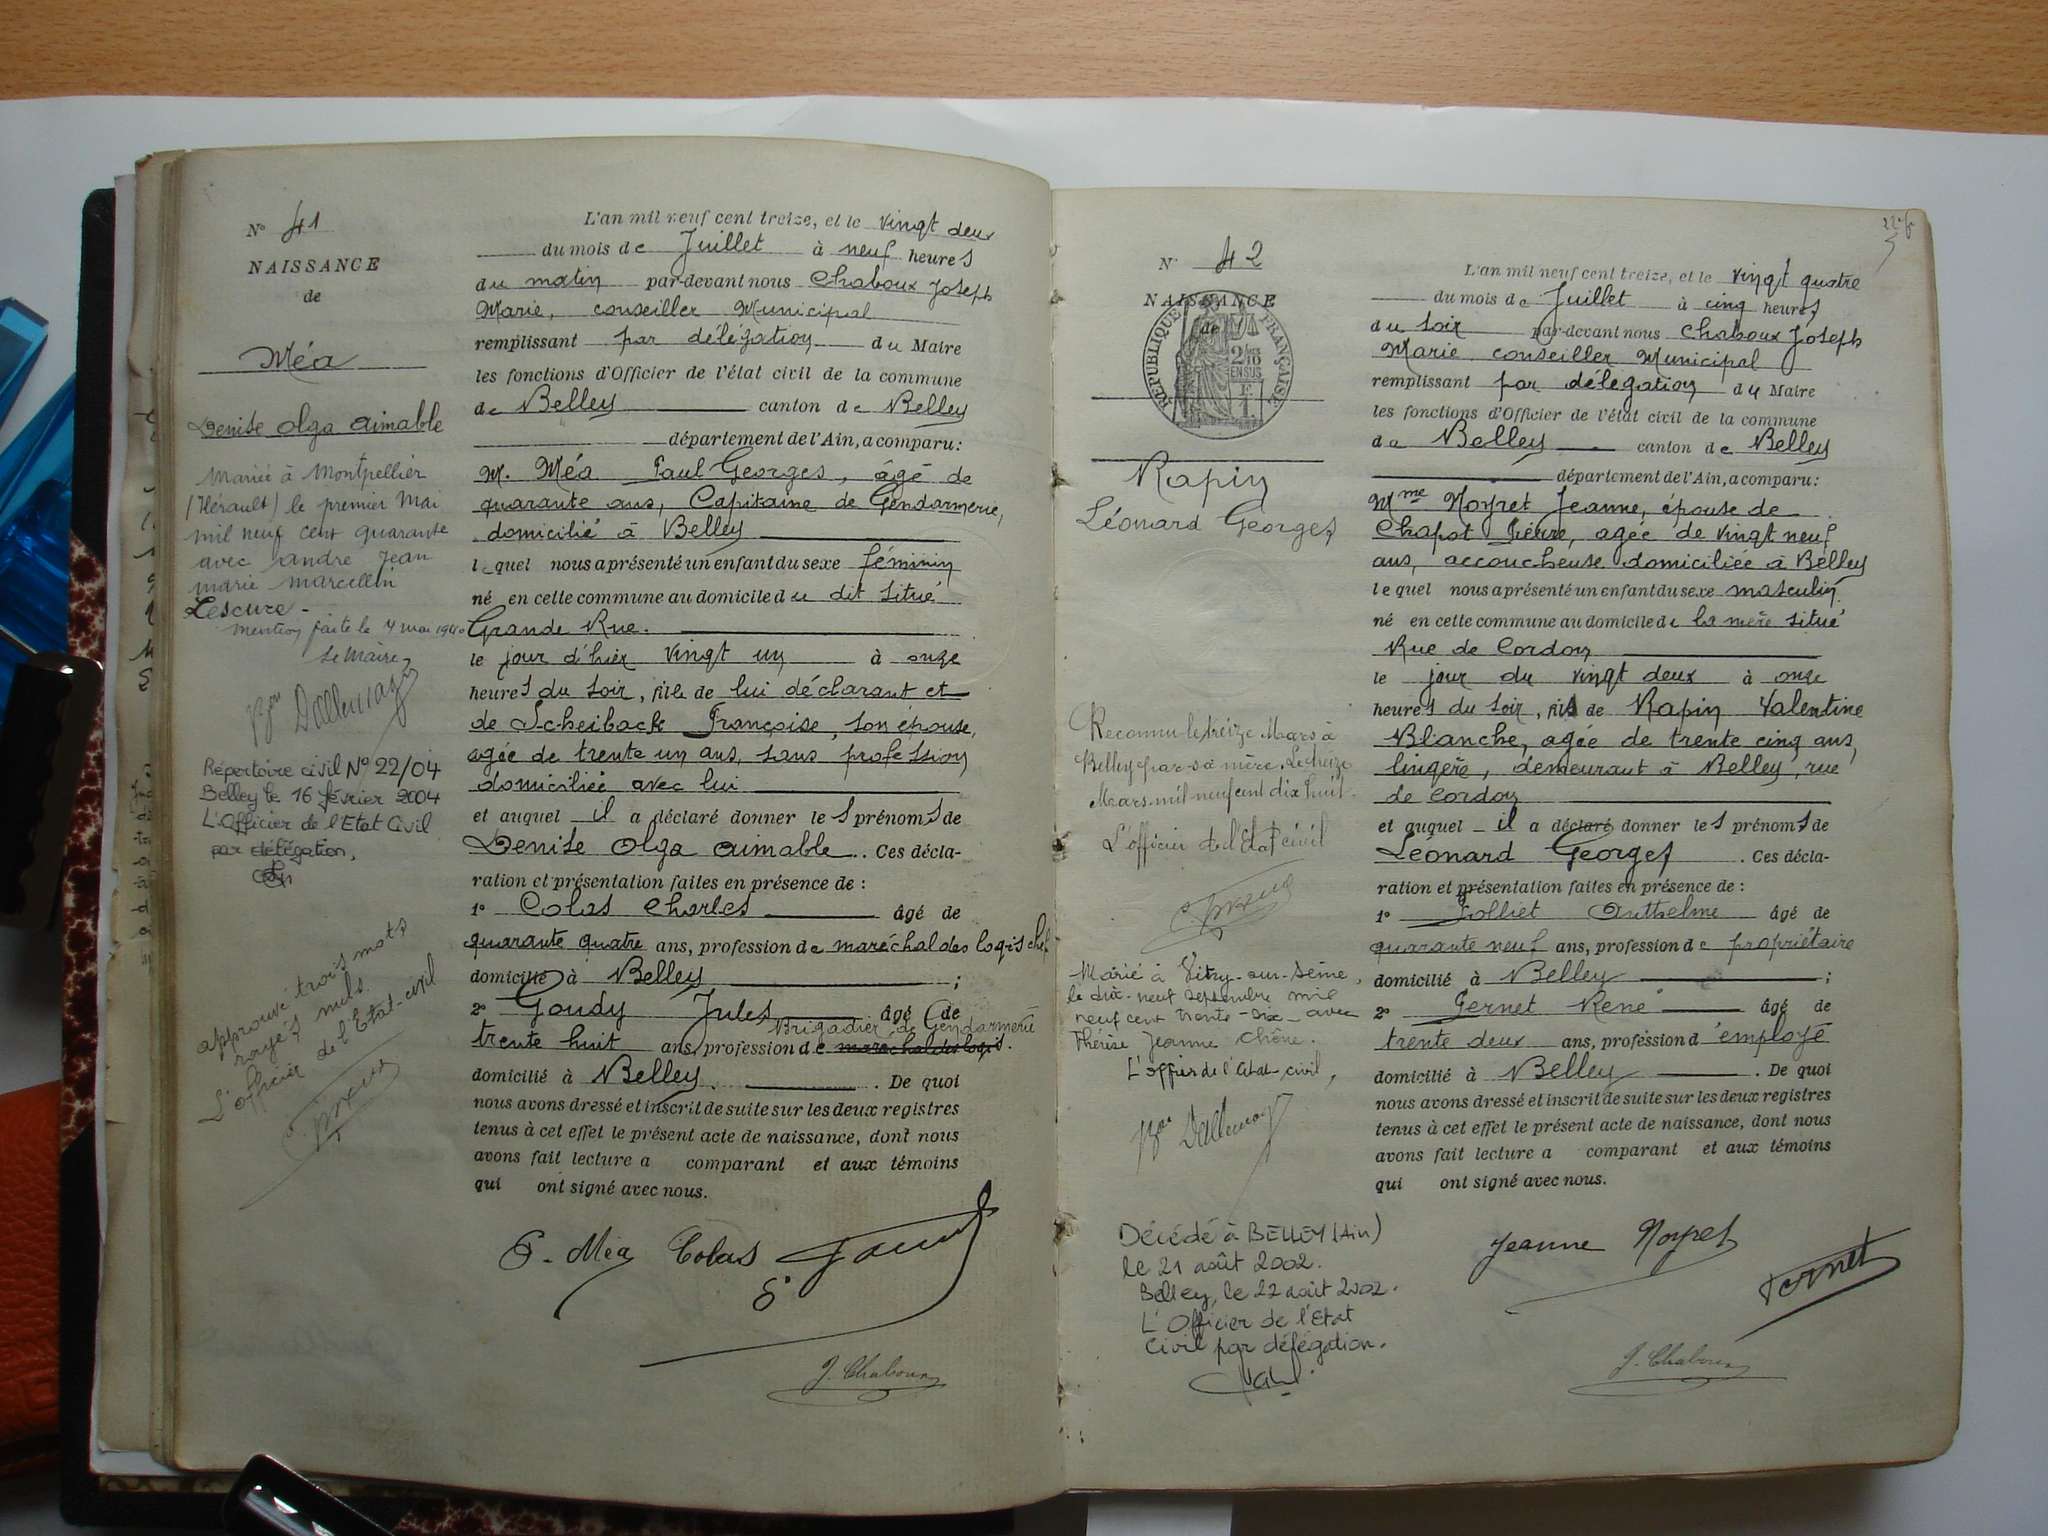 N° 41
NAISSANCE
de
Méa
Denise Olga Aimable
Mariée à Montpellier
(Hérault) le premier Mai
mil neuf cent quarante
avec André Jean
Marie Marcellin
Lescure -
Mention faite le 7 mai 1940
Le Maire,
Répertoire civil N° 22/04
Belley le 16 février 2004
L'Officier de l'Etat Civil
par délégation,
approuvé trois mots
rayés nuls.
L'officier de l'Etat-civil
L'an mil neuf cent treize, et le vingt deux
du mois de Juillet à neuf heures
du matin par-devant nous Chaboux Joseph
Marie, conseiller Municipal
remplissant par délégation du Maire
les fonctions d'Officier de l'état civil de la commune
de Belley canton de Belley
département de l'Ain, a comparu:
M. Méa Paul Georges, âgé de
quarante ans, Capitaine de Gendarmerie,
domicilié à Belley
lequel nous a présenté un enfant du sexe féminin
né en cette commune au domicile du dit situé
Grande Rue.
le jour d'hier vingt un à onze
heures du soir, fille de lui déclarant et
de Scheiback Françoise, son épouse,
agée de trente un ans, sans profession
domiciliée avec lui
et auquel il a déclaré donner les prénoms de
Denise Olga Aimable. Ces décla-
ration et présentation faites en présence de:
1° Colas Charles âgé de
quarante quatre ans, profession de maréchal des logis chef
domicilié à Belley ;
2° Goudy Jules âgé de
Brigadier de Gendarmerie
trente huit ans, profession de maréchal des logis.
domicilié à Belley. De quoi
nous avons dressé et inscrit de suite sur les deux registres
tenus à cet effet le présent acte de naissance, dont nous
avons fait lecture a comparant et aux témoins
qui ont signé avec nous.
P. Méa Colas
J. Chaboux
N° 42
NAISSANCE
de
RÉPUBLIQUE FRANÇAISE
2/10 EN SUS
Rapin
Léonard Georges
Reconnu le treize Mars à
Belley par sa mère. Le treize
Mars mil neuf cent dix huit.
L'officier de l'Etat civil
Marié à Vitry-sur-Seine,
le dix-neuf septembre mil
neuf cent trente-six avec
Thérèse Jeanne Chêne.
L'offier de l'état civil,
Décédé à BELLEY (Ain)
le 21 août 2002.
Belley, le 22 août 2002.
L'Officier de l'Etat
Civil par délégation.
L'an mil neuf cent treize, et le vingt quatre
du mois de Juillet à cinq heures
du soir par-devant nous Chaboux Joseph
Marie conseiller Municipal
remplissant par délégation du Maire
les fonctions d'Officier de l'état civil de la commune
de Belley canton de Belley
département de l'Ain, a comparu:
Mme Noyret Jeanne, épouse de
Chapot Pierre, agée de vingt neuf
ans, accoucheuse domiciliée à Belley
lequel nous a présenté un enfant du sexe masculin
né en cette commune au domicile de la mère situé
Rue de Cordon
le jour du vingt deux à onze
heures du soir, fils de Rapin Valentine
Blanche, agée de trente cinq ans,
lingère, demeurant à Belley, rue
de Cordon
et auquel il a déclaré donner les prénoms de
Léonard Georges. Ces décla-
ration et présentation faites en présence de:
1° Jolliet Anthelme âgé de
quarante neuf ans, profession de propriétaire
domicilié à Belley ;
2° Pernet René âgé de
trente deux ans, profession d'employé
domicilié à Belley. De quoi
nous avons dressé et inscrit de suite sur les deux registres
tenus à cet effet le présent acte de naissance, dont nous
avons fait lecture a comparant et aux témoins
qui ont signé avec nous.
Jeanne Noyret
Pernet
J. Chaboux